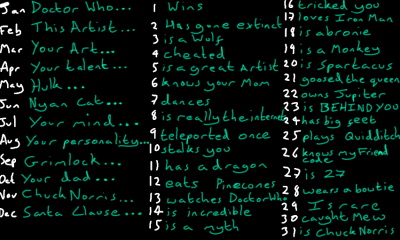 Jan Doctor Who...
Feb This Artist...
Mar Your Art...
Apr Your talent...
May Hulk...
Jun Nyan Cat...
Jul Your mind...
Aug Your personality...
Sep Grimlock...
Oct Your dad...
Nov Chuck Norris...
Dec Santa Clause...
1 Wins
2 Has gone extinct
3 is a Wolf
4 cheated
5 is a great Artist
6 knows your Mom
7 dances
8 is really the internet
9 teleported once
10 stalks you
11 has a dragon
12 eats Pinecones
13 watches Doctor Who
14 is incredible
15 is a myth
16 tricked you
17 loves Iron Man
18 is abronie
19 is a Monkey
20 is Spartacus
21 goosed the queen
22 owns Jupiter
23 is BEHIND YOU
24 has big feet
25 plays Quidditch
26 knows my Friend
Code
27 is 27
28 wears a boutie
29 Is rare
30 caught Mew
31 is Chuck Norris